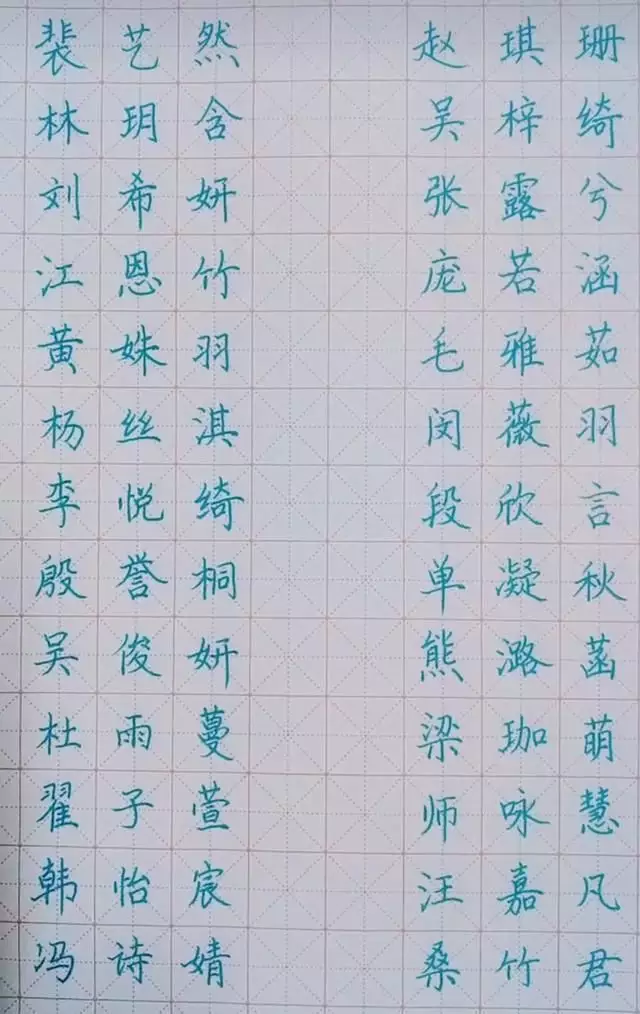 裴艺然 赵琪珊
林玥含 吴梓绮
刘希妍 张露兮
江恩竹 庞若涵
黄姝羽 毛雅茹
杨丝淇 闵薇羽
李悦绮 段欣言
殷誉桐 单凝秋
吴俊妍 熊潞菡
杜雨蔓 梁珈萌
翟子萱 师咏慧
韩怡宸 汪嘉凡
冯诗婧 桑竹君